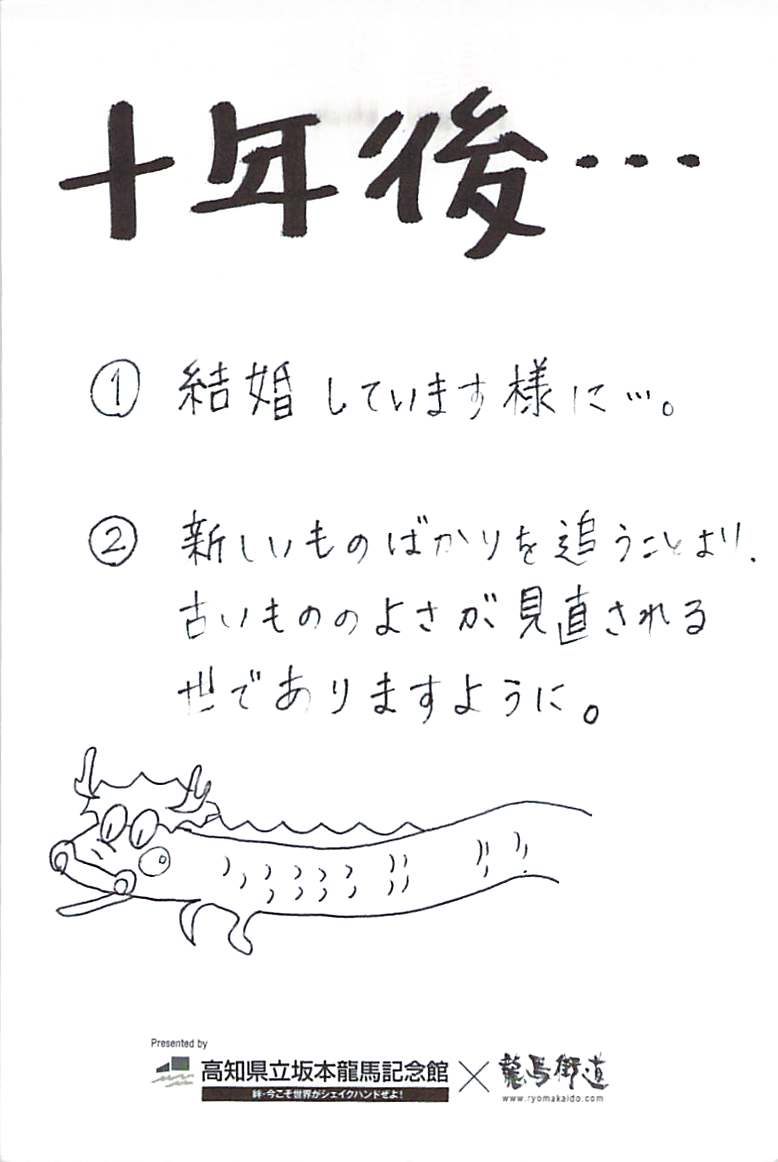 十年後…
① 結婚しています様に…。
② 新しいものばかりを追うことより、
古いもののよさが見直される
世でありますように。
Presented by
高知県立坂本龍馬記念館 × 龍馬街道
絆・今こそ世界がシェイクハンドぜよ!
www.ryomakaido.com